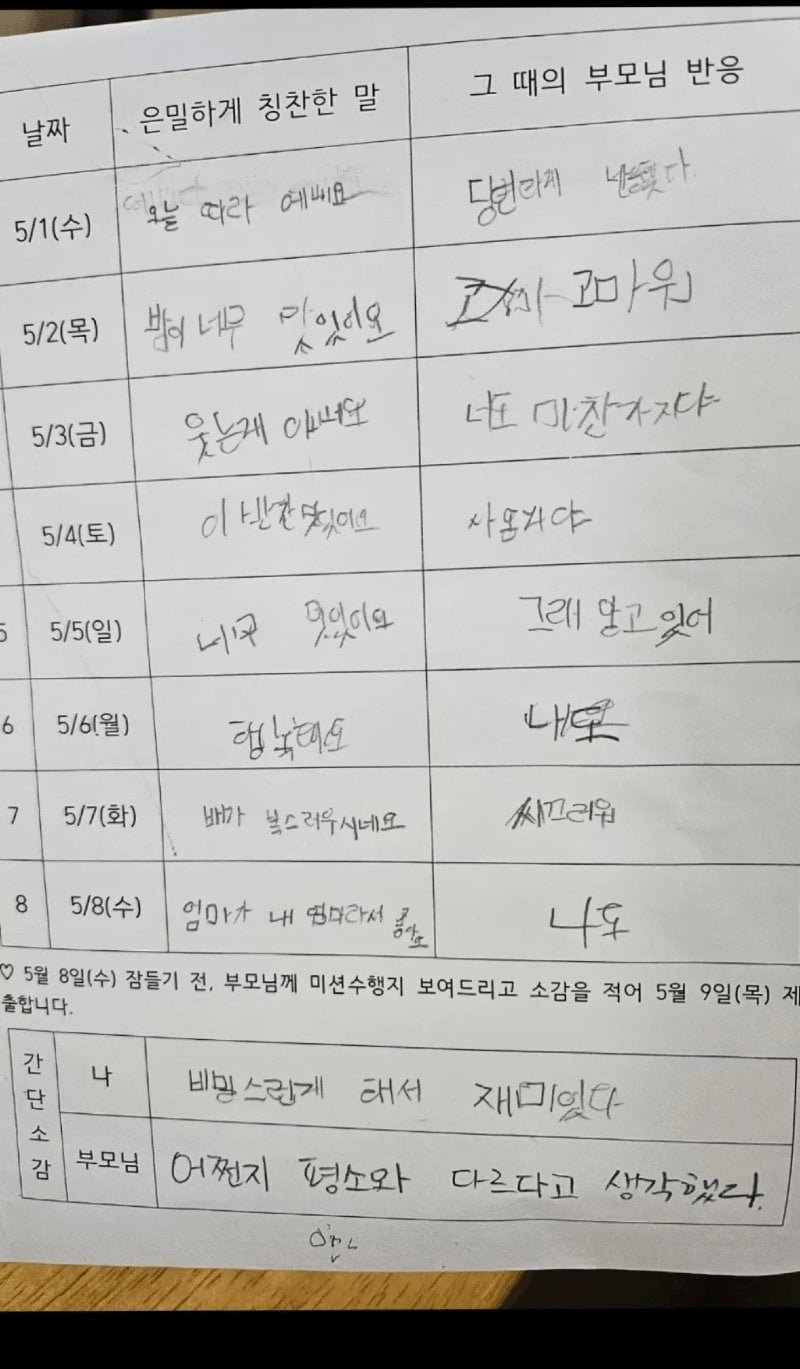 날짜 은밀하게 칭찬한 말 그 때의 부모님 반응
5/1(수) 오늘 따라 예뻐요 당번라게
5/2(목) 밤이 너무 맛있이요 고마워
5/3(금) 웃는게 너도 마찬가지다
5/4(토) 이 반찬 맛있어요
5 5/5(일) 너무 멋있이요 그래 알고 있어
6 5/6(월) 행복해요 내도
7 5/7(화) 배가 복스러우시네요 씨끄러워
8 5/8(수) 엄마가 내 엄마라서 좋아요 나도
♡ 5월 8일(수) 잠들기 전, 부모님께 미션수행지 보여드리고 소감을 적어 5월 9일(목) 제
출합니다.
간단소감
나 비밀스런게 해서 재미있다
부모님 어쩐지 평소와 다르다고 생각했다.